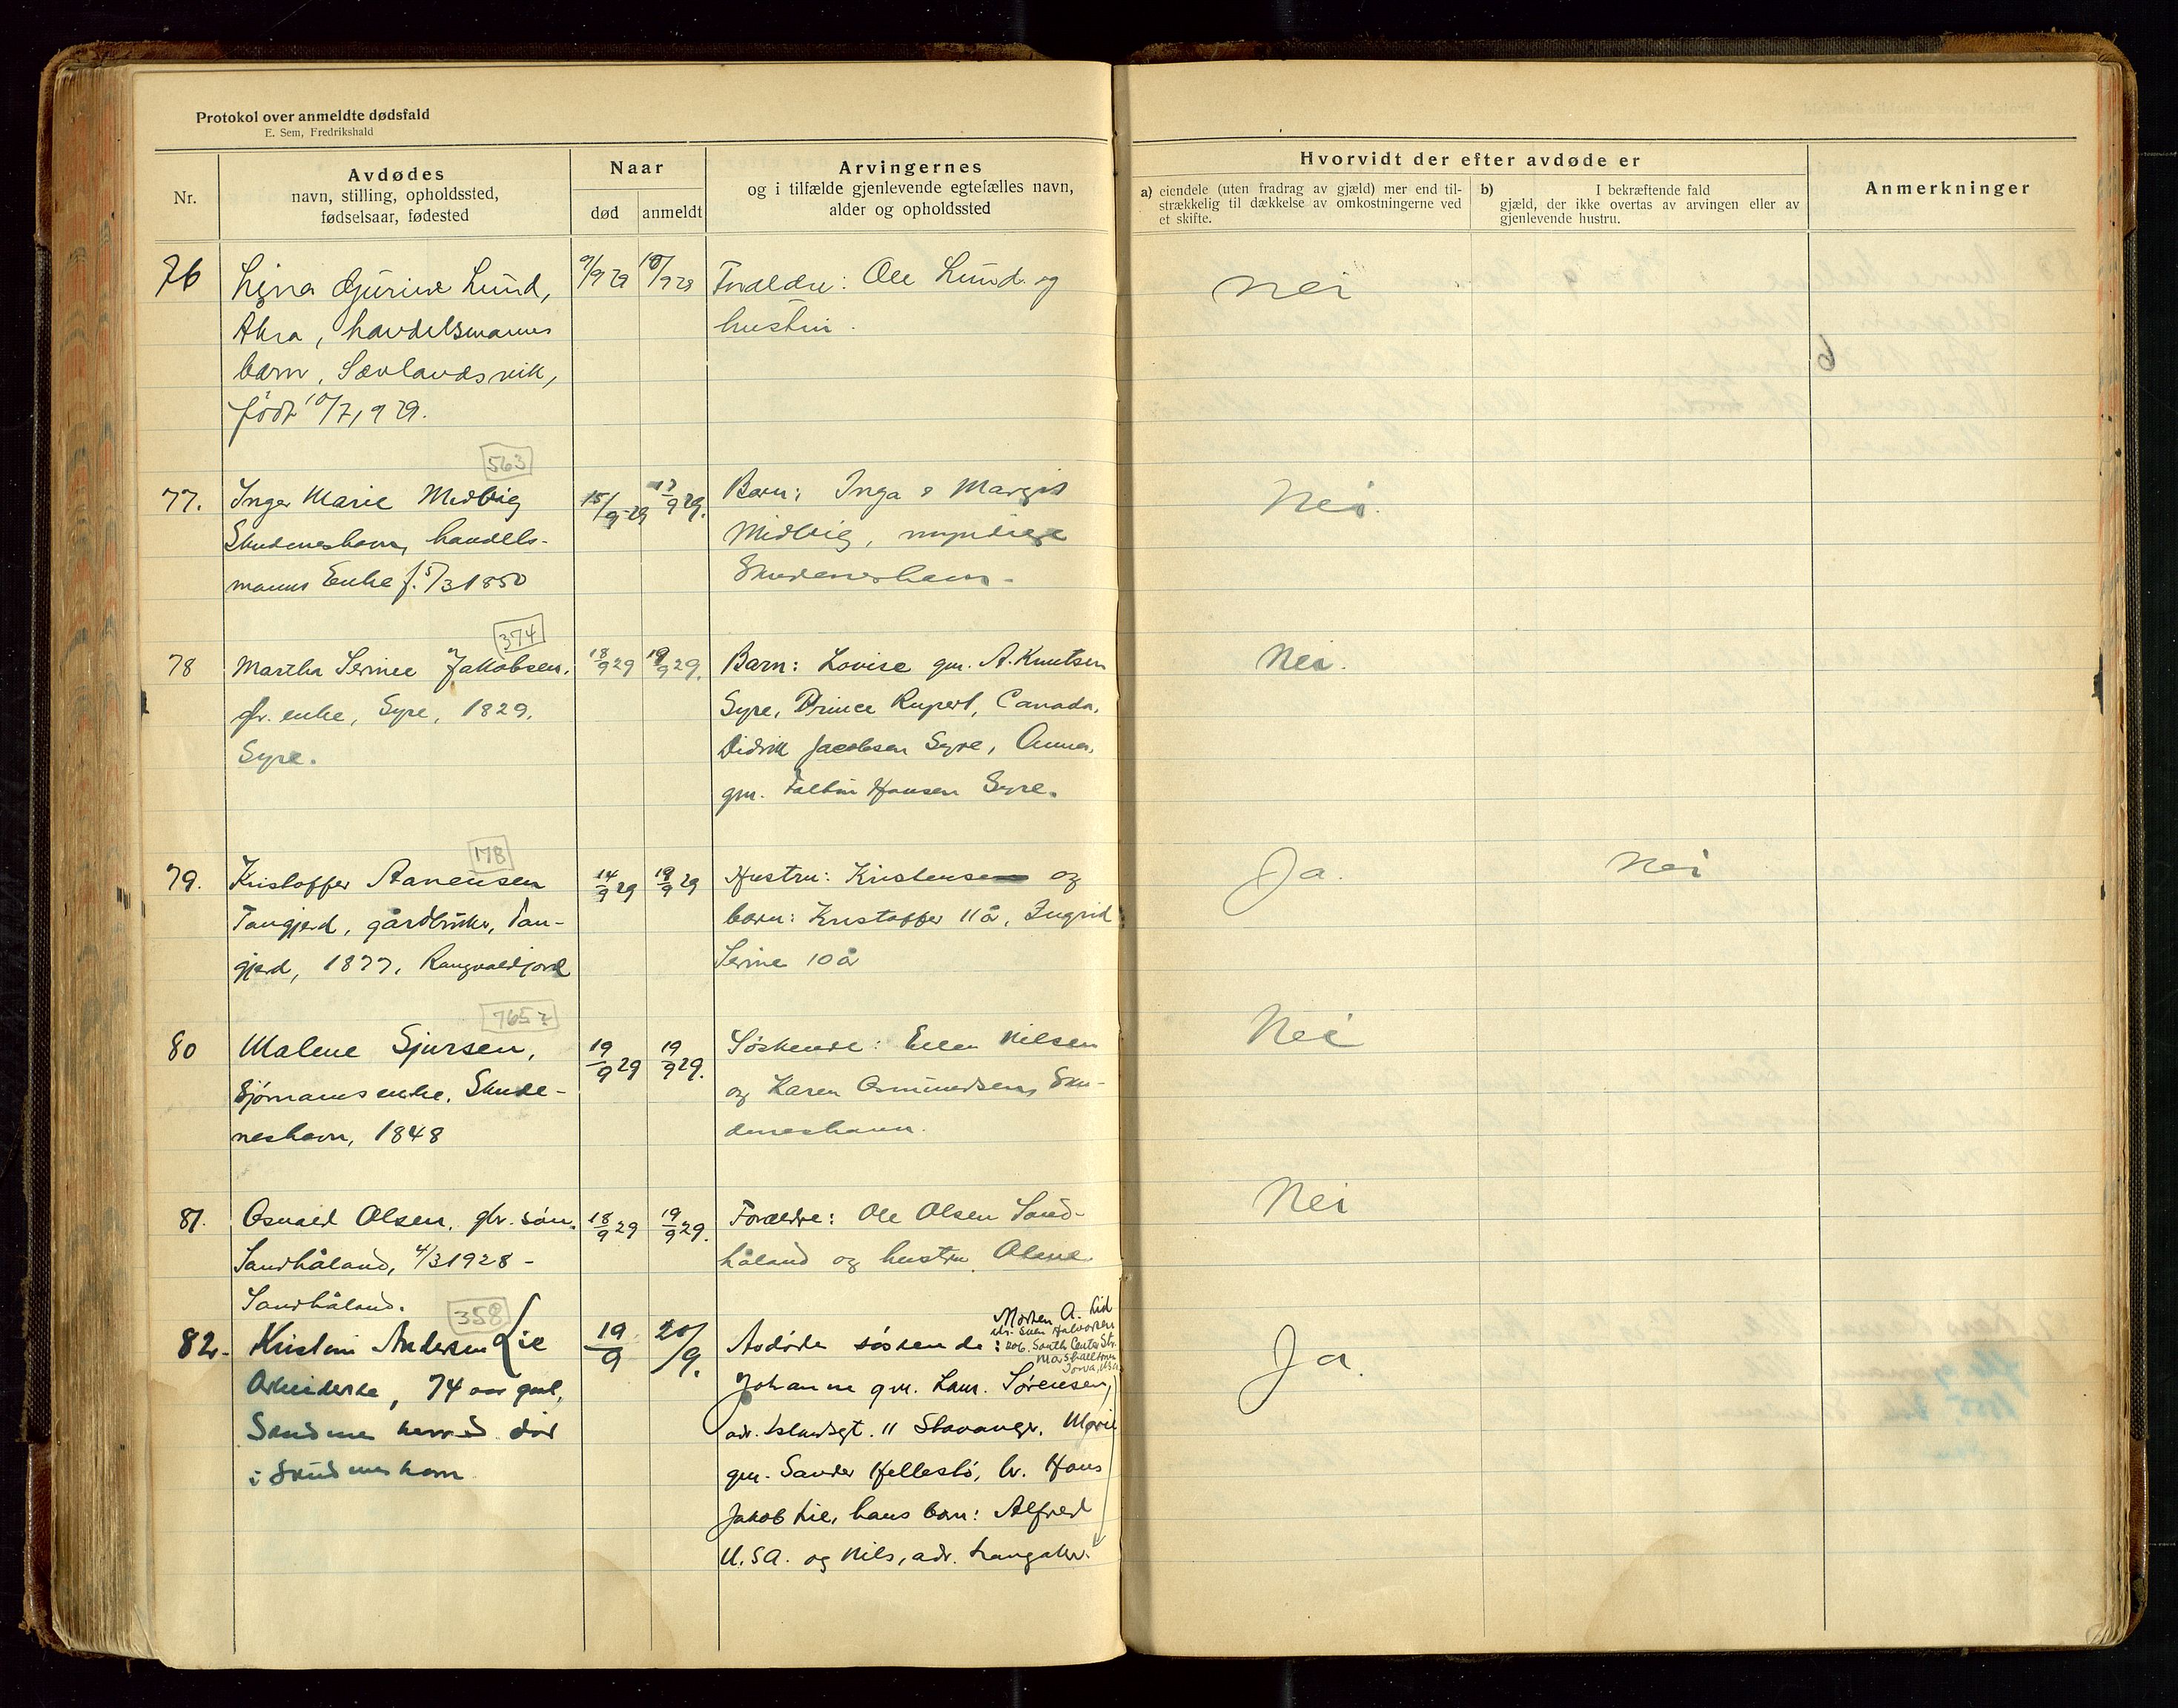 Protokol over anmeldte dødsfald
E. Sem, Fredrikshald
Nr.
Avdødes
navn, stilling, opholdssted,
fødselsaar, fødested
Naar
død
anmeldt
Arvingernes
og i tilfælde gjenlevende egtefælles navn,
alder og opholdssted
Hvorvidt der efter avdøde er
a) eiendele (uten fradrag av gjæld) mer end til-
strækkelig til dækkelse av omkostningerne ved
et skifte.
b) I bekræftende fald
gjæld, der ikke overtas av arvingen eller av
gjenlevende hustru.
Anmerkninger
76
Gjurine Lund,
Åkra, handelsmanns
barn, Sævlandsvik,
født 10/7, 929.
9/9 29
10/9 29
Forældre: Ole Lund og
hustru.
Nei
6
563
77.
Inger Marie Midbøig
Skudeneshavn, handels-
manns Enke f. 5/3 1850
15/9-29
17/9 29.
Barn: Inga & Margit
Midbøig, myndige
Skudeneshavn.
Nei.
374
78
Martha Serine Jakobsen.
gbr. enke, Syre, 1829.
Syre.
18/9 29
19/9 29.
Barn: Lovise gm. A. Knutsen
Syre, Prince Rupert, Canada,
Didrik Jacobsen Syre, Anna,
gm. Hansen Syre.
Nei.
178
79.
Kristoffer Aanensen
Tangjerd, gårdbruker, Tan-
gjerd, 1877, Rangvaldjord
14/9 29
18/9 29
Hustru: og
barn: Kristoffer 11 år, Ingrid
Serine 10 år
Ja.
Nei
7652
80
Malene Sjursen,
Sjømanns enke, Skude-
neshavn, 1848
19/9 29
19/9 29.
Søskende: Ellen Nilsen
og Karen Osmundsen, Sku-
deneshavn.
Nei
81.
Osvald Olsen, gbr. søn.
Sandhåland, 4/3 1928 -
Sandhåland.
18/9 29
19/9 29.
Forældre: Ole Olsen Sand-
håland og hustru
Nei
358
82.
Kristine Andersen Lie
Arbeiderske, 74 aar gml,
herred. død
i Skudeneshavn
19/9
20/9.
Morten A. Lid
adr. Sven Halvorsen
Avdødes søskende: 206. South Center Str.
Marshalltown
Iowa, USA
Johanne gm. Laur. Sørensen,
adr. 11 Stavanger, Marie
gm. Sander Hellestø, br. Hans
Jakob Lie, hans barn: Alfred
U.S.A. og Nils, adr. Langaker.
Ja.